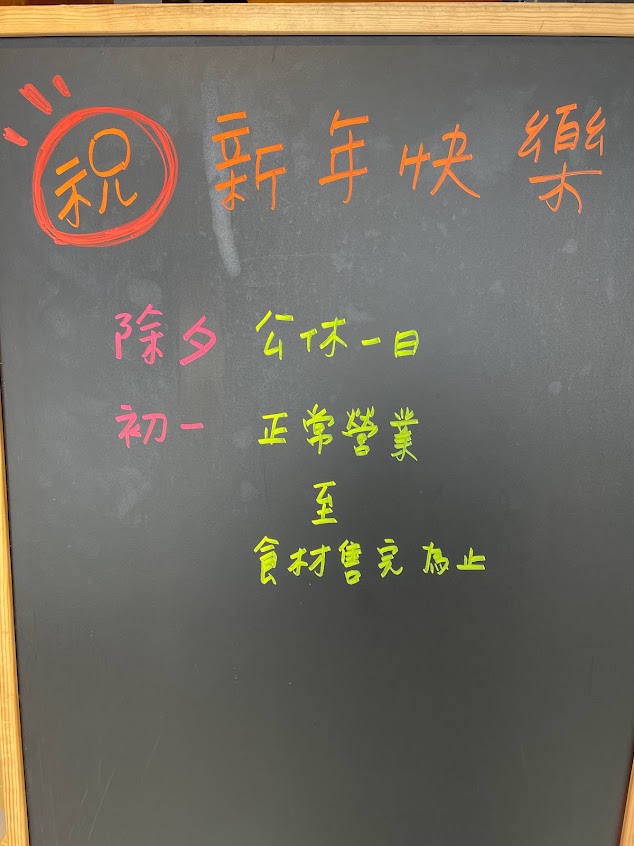 祝 新年快樂
除夕 公休一日
初一 正常營業
至
食材售完為止